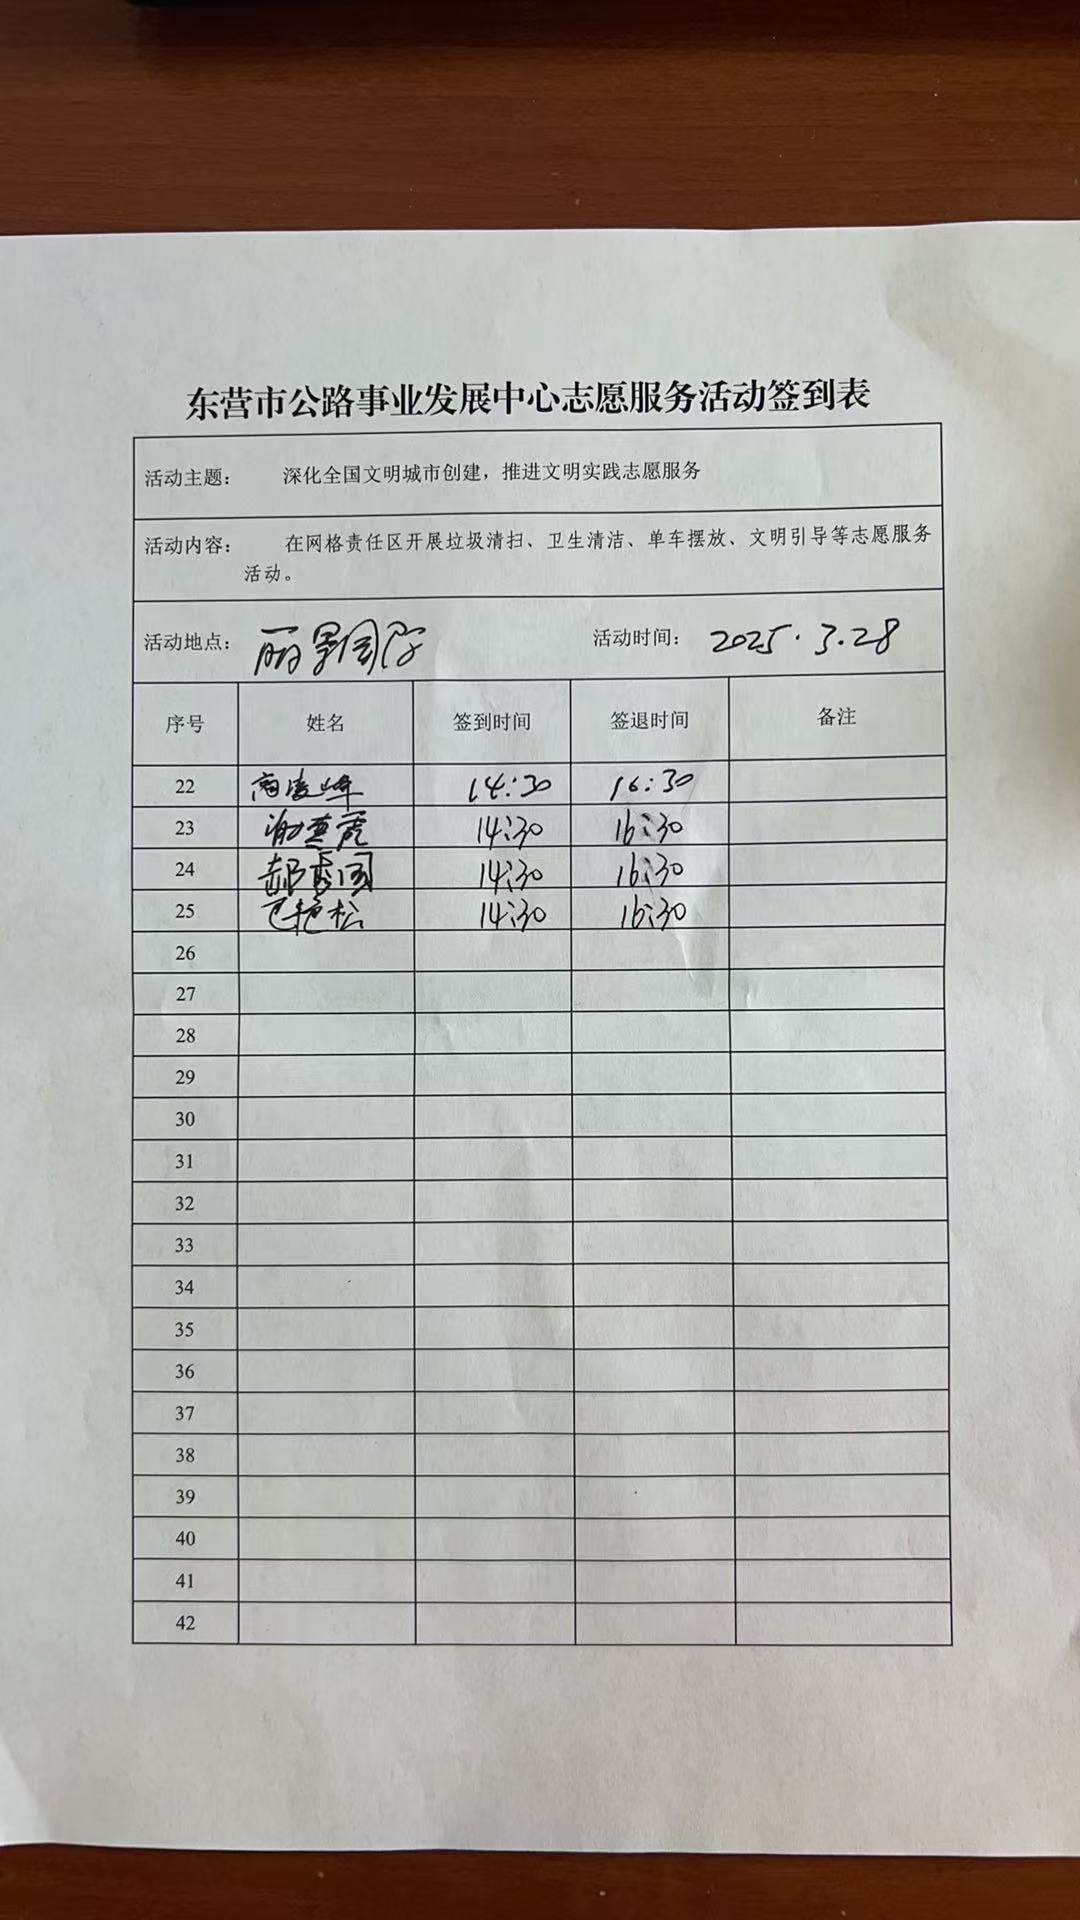 东营市公路事业发展中心志愿服务活动签到表
活动主题： 深化全国文明城市创建，推进文明实践志愿服务
活动内容： 在网格责任区开展垃圾清扫、卫生清洁、单车摆放、文明引导等志愿服务
活动。
活动地点： 丽景国际 活动时间： 2025.3.28
序号 姓名 签到时间 签退时间 备注
22 高凌峰 14:30 16:30
23 14:30 16:30
24 郝 国 14:30 16:30
25 艳松 14:30 16:30
26
27
28
29
30
31
32
33
34
35
36
37
38
39
40
41
42